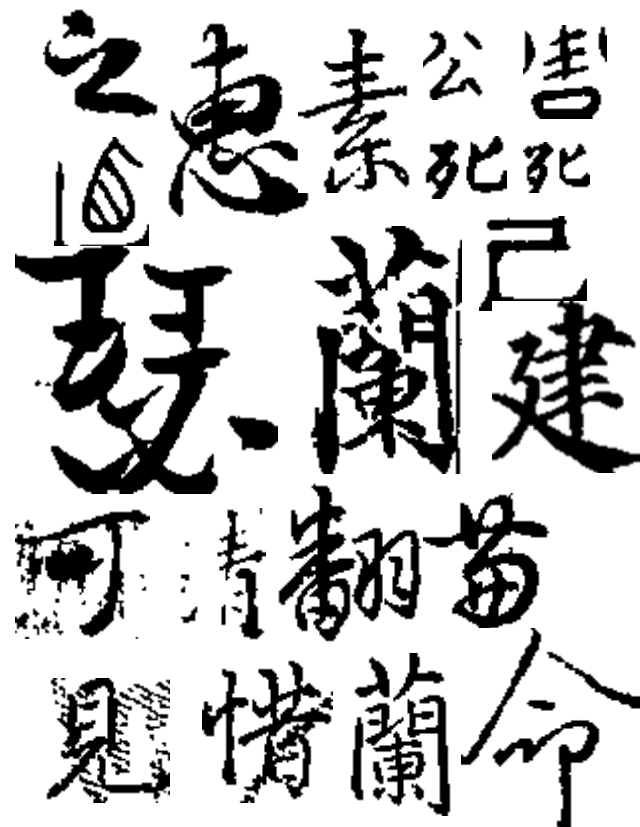 之 惠 素 公
死 死
瑟 蘭 己 建
可 清 翻 苗
見 蘭 命